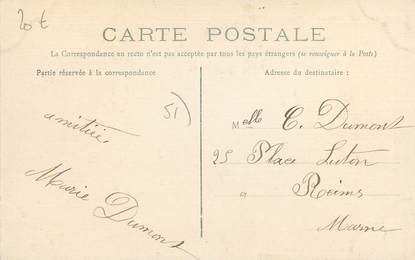 20 €
CARTE POSTALE
La Correspondance au recto n'est pas acceptée par tous les pays étrangers (se renseigner à la Poste)
Partie réservée à la correspondance
Adresse du destinataire :
51
amitiés
Marie Dumont
Melle C. Dumont
25 Place Luton
a Reims
Marne